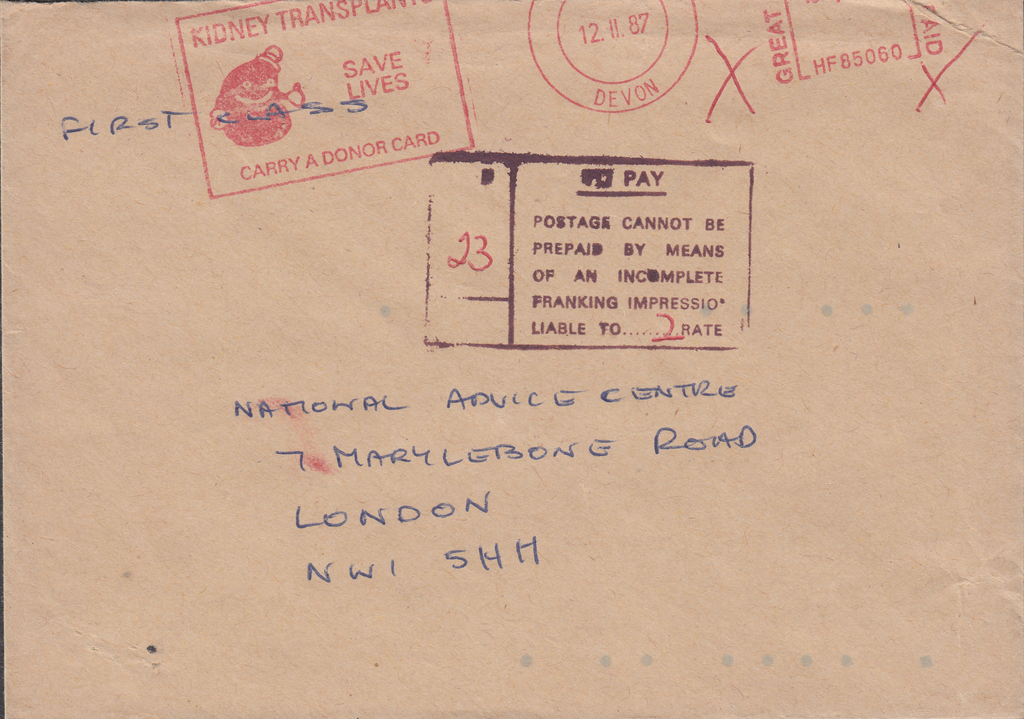 KIDNEY TRANSPLANTS
SAVE
LIVES
CARRY A DONOR CARD
12. II. 87
DEVON
GREAT
HF85060
PAID
FIRST CLASS
PAY
23
POSTAGE CANNOT BE
PREPAID BY MEANS
OF AN INCOMPLETE
FRANKING IMPRESSION
LIABLE TO......2 RATE
NATIONAL ADVICE CENTRE
7 MARYLEBONE ROAD
LONDON
NW1 5HH